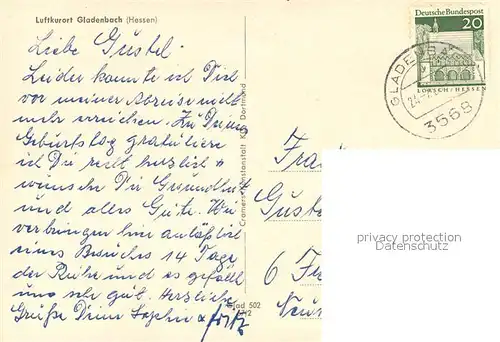 Luftkurort Gladenbach (Hessen)
Deutsche Bundespost
20
LORSCH/HESSEN
GLADENBA
3568
Liebe Gustel!
Leider konnte ich Dich
vor meiner Abreise nicht
mehr erreichen. Zu Deinem
Geburtstag gratuliere
ich Dir recht herzlich +
wünsche Dir Gesundheit
und alles Gute. Wir
verbringen hier anläßlich
eines Besuches 14 Tage
der Ruhe und es gefällt
uns sehr gut. Herzliche
Grüße Deine Sophie + Fritz
Cramers Kunstanstalt KG, Dortmund
Glad 502
Frau
Gust
6 F
privacy protection
Datenschutz